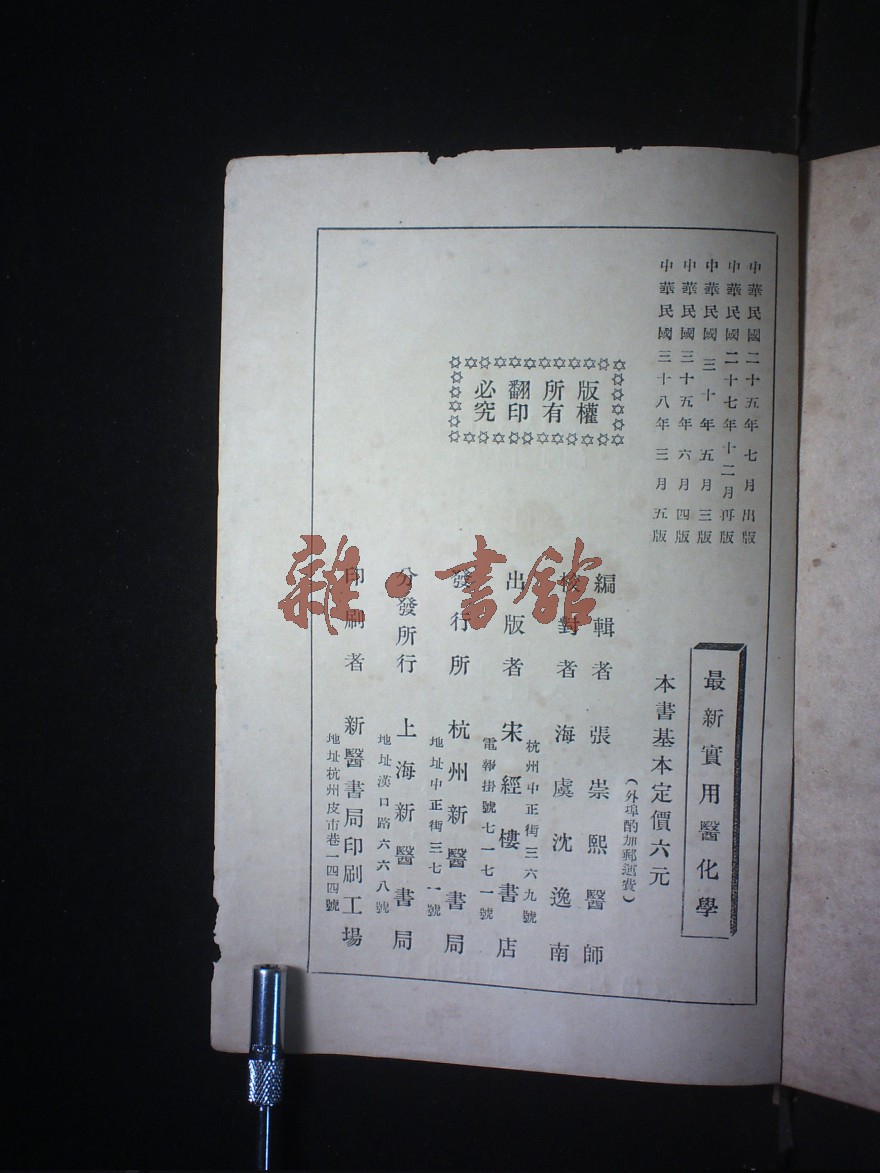 中華民國二十五年七月出版
中華民國二十七年十二月再版
中華民國三十年五月三版
中華民國三十五年六月四版
中華民國三十八年三月五版
版權
所有
翻印
必究
最新實用醫化學
本書基本定價六元
（外埠酌加郵運費）
編輯者 張崇熙醫師
校對者 海虞沈逸南
出版者 宋經樓書店
杭州中正街三六九號
電報掛號七一七一號
發行所 杭州新醫書局
地址中正街三七一號
分發所行 上海新醫書局
地址漢口路六六八號
印刷者 新醫書局印刷工場
地址杭州皮市巷一四四號
雜·書館